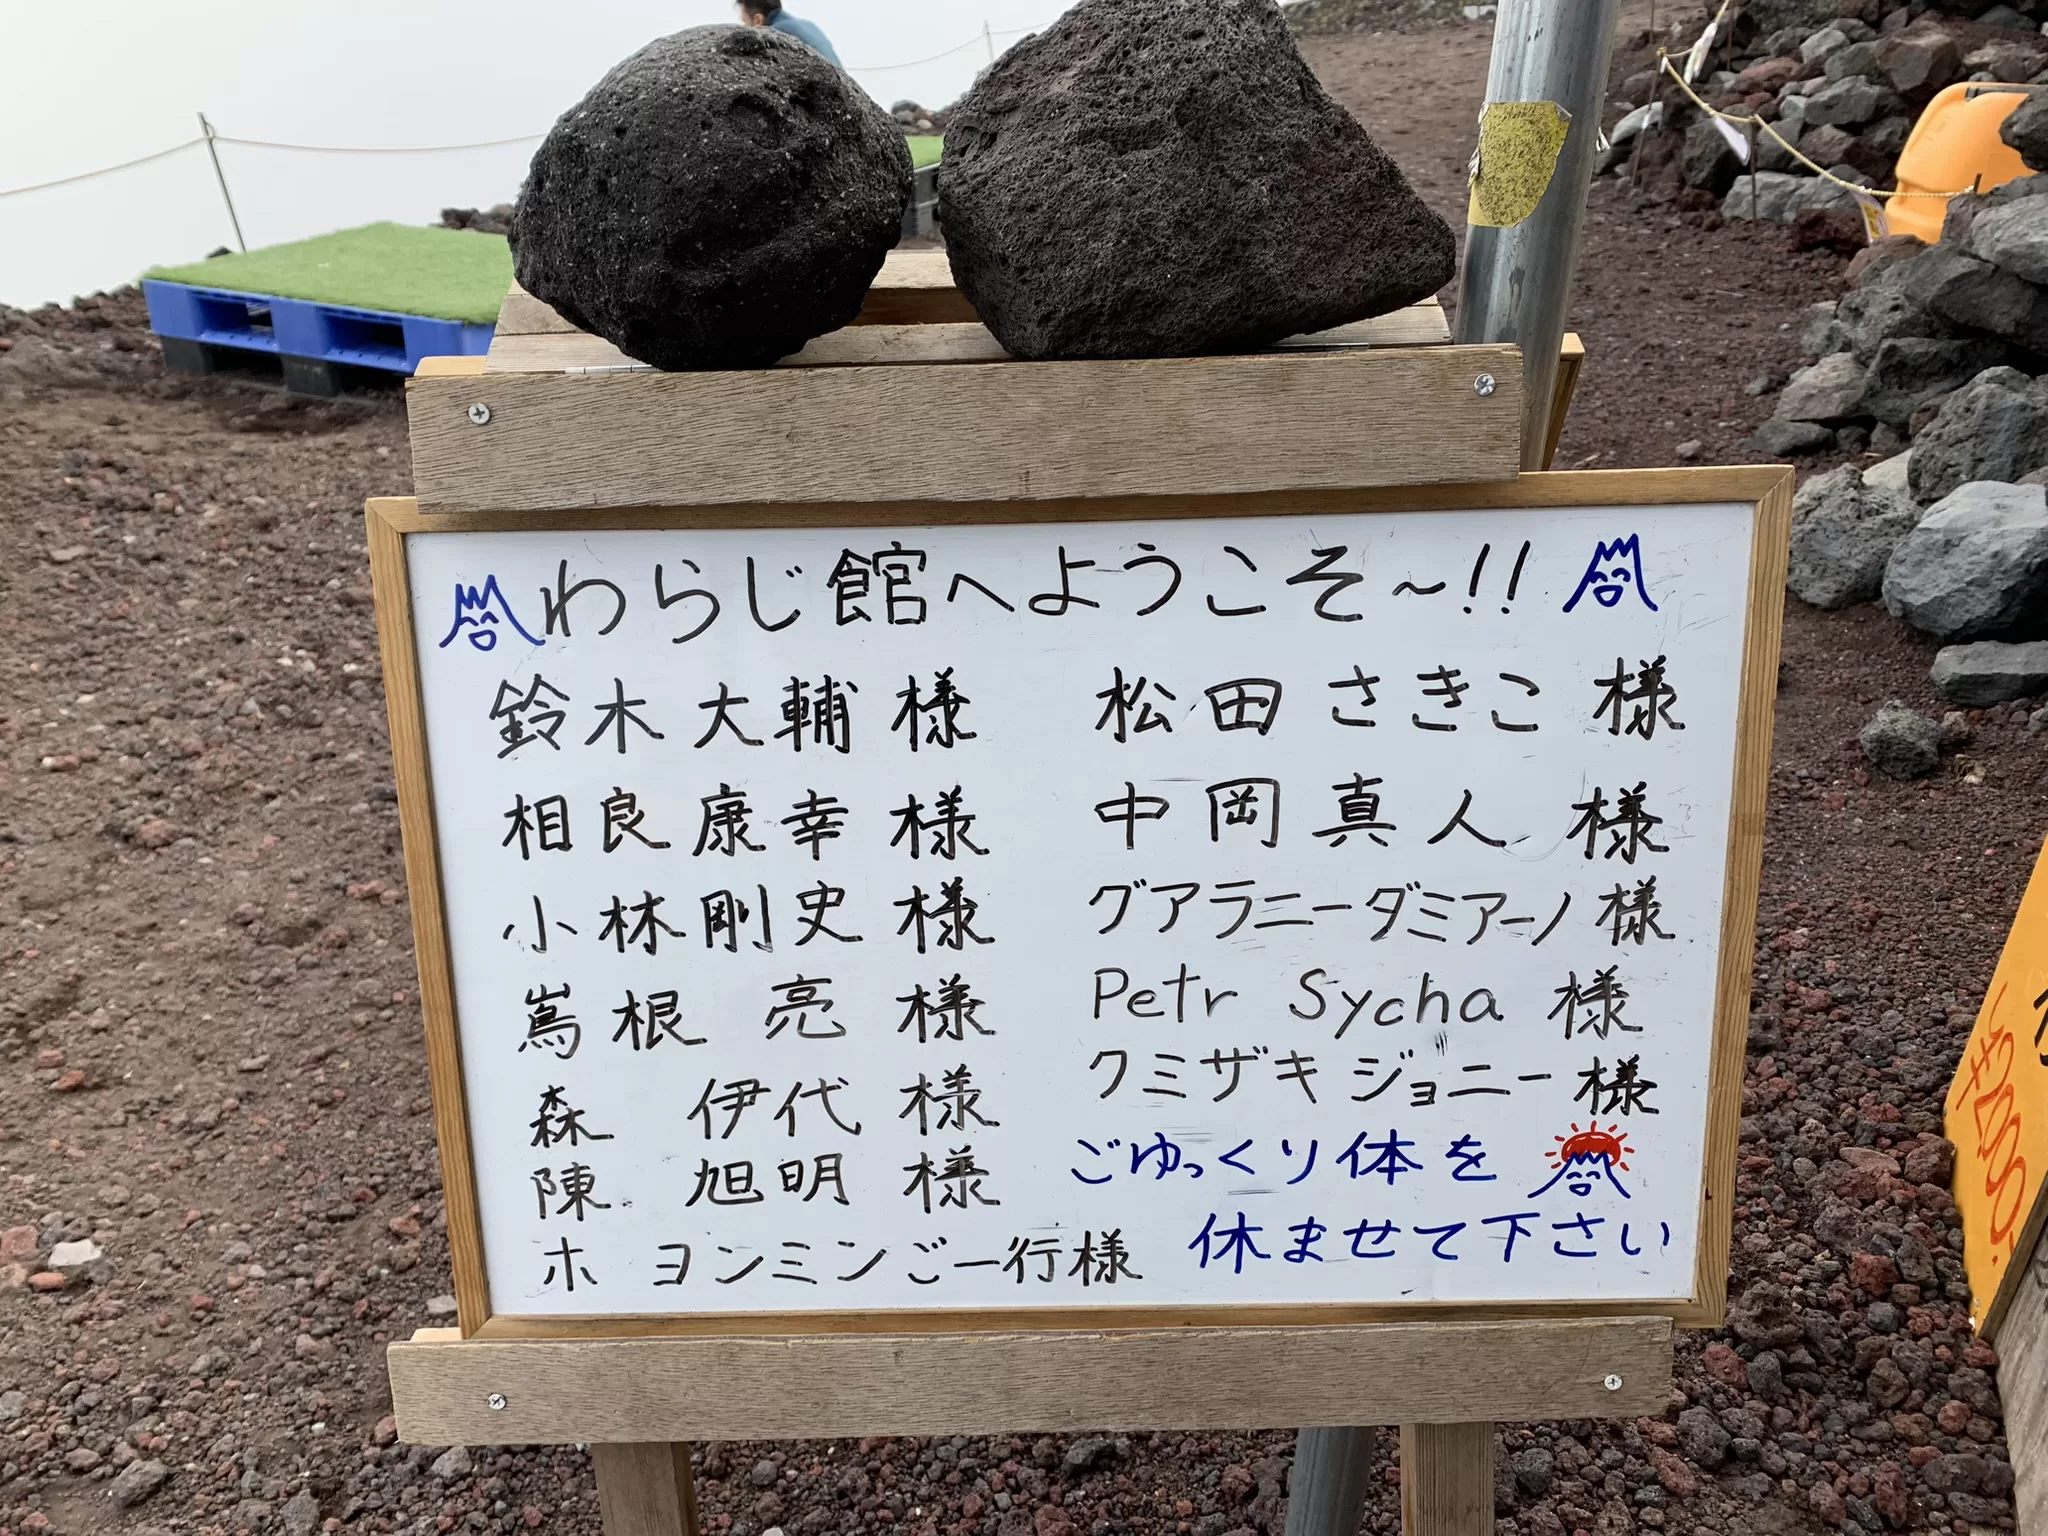 わらじ館へようこそ～!!
鈴木大輔 様
相良康幸 様
小林剛史 様
嶌根 亮 様
森 伊代 様
陳 旭明 様
ホ ヨンミンご一行様
松田さきこ 様
中岡真人 様
グアラニーダミアーノ 様
Petr Sycha 様
クミザキ ジョニー 様
ごゆっくり体を
休ませて下さい